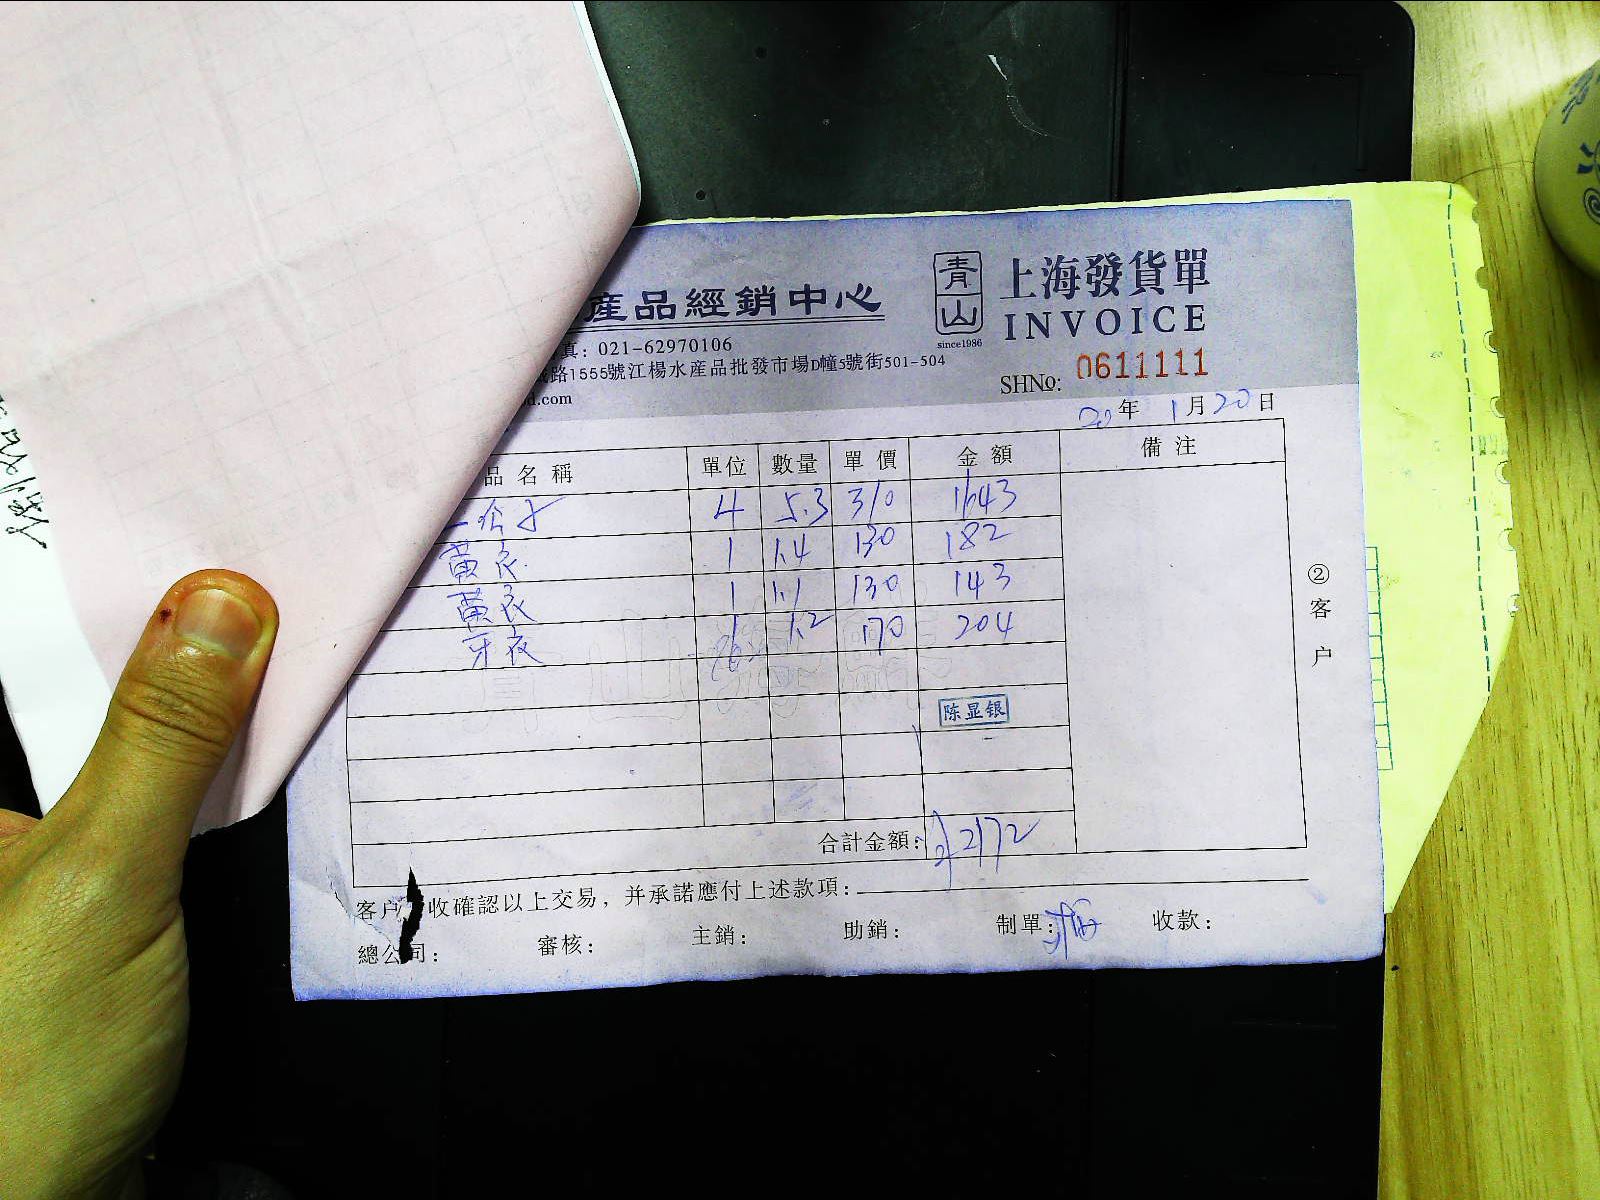 產品經銷中心
青山
since1986
上海發貨單
INVOICE
真: 021-62970106
路1555號江楊水產品批發市場D幢5號街501-504
d.com
SHNo: 0611111
20年 1月20日
品名稱 單位 數量 單價 金額 備注
4 5.3 310 1643
黃衣 1 1.4 130 182
黃衣 1 1.1 130 143
牙衣 1 1.2 170 204
陈显银
合計金額: 2172
②客户
客户 收確認以上交易，并承諾應付上述款項:
總公司: 審核: 主銷: 助銷: 制單: 收款: